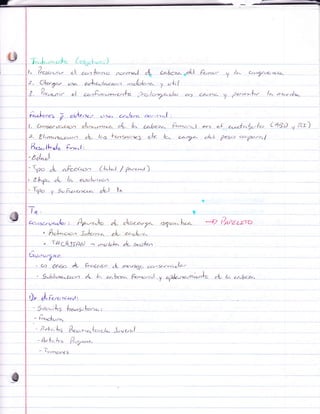 Tratamiento (objetivos)
1. Preservar el contorno normal de cabeza del Fémur y la congruencia
2. Otorgar una articulación indolora y útil
3. Prevenir el confinamiento prolongado en cama y permitir la marcha
Factores p. obtener una cadera normal:
1. Conservación de la cabeza Femoral en el cuadrante
2. Eliminación de las tensiones de la carga del peso corporal
Resultado Final:
- Edad
- Tipo de afección (total / parcial)
- Etapa de la evolución
- Tipo y Suficiencia del Tx
Tx:
Conservador: Aparato de descarga → PARCLETO
• Rotación Interna de cadera
Quirúrgico:
- en caso de Fracaso de manejo conservador
- Subluxación de la cabeza Femoral y aplanamiento de la cabeza
Dx diferencial:
- Sinovitis transitoria
- Fractura
- Artritis Reumatoide Juvenil
- Artritis Piógena
- Tumores